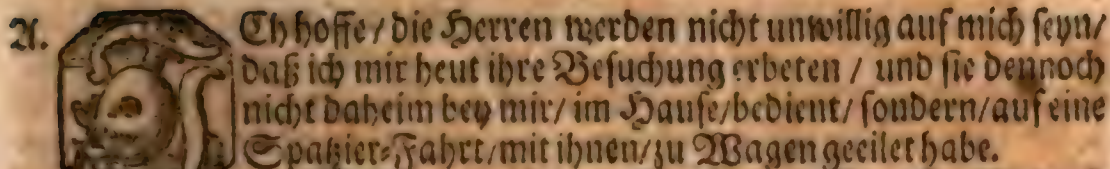 A. ICh hoffe / die Herren werden nicht unwillig auf mich seyn /
daß ich mir heut ihre Besuchung erbeten / und sie dennoch
nicht daheim bey mir / im Hause / bedient / sondern / auf eine
Spatzier-Fahrt / mit ihnen / zu Wagen geeilet habe.